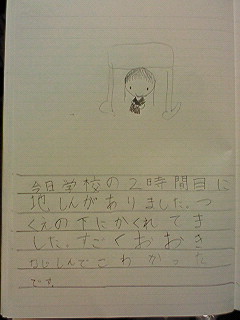 今日学校の2時間目に
地しんがありました。つ
くえの下にかくれてま
した。すごくおおき
なじしんでこわかった
です。